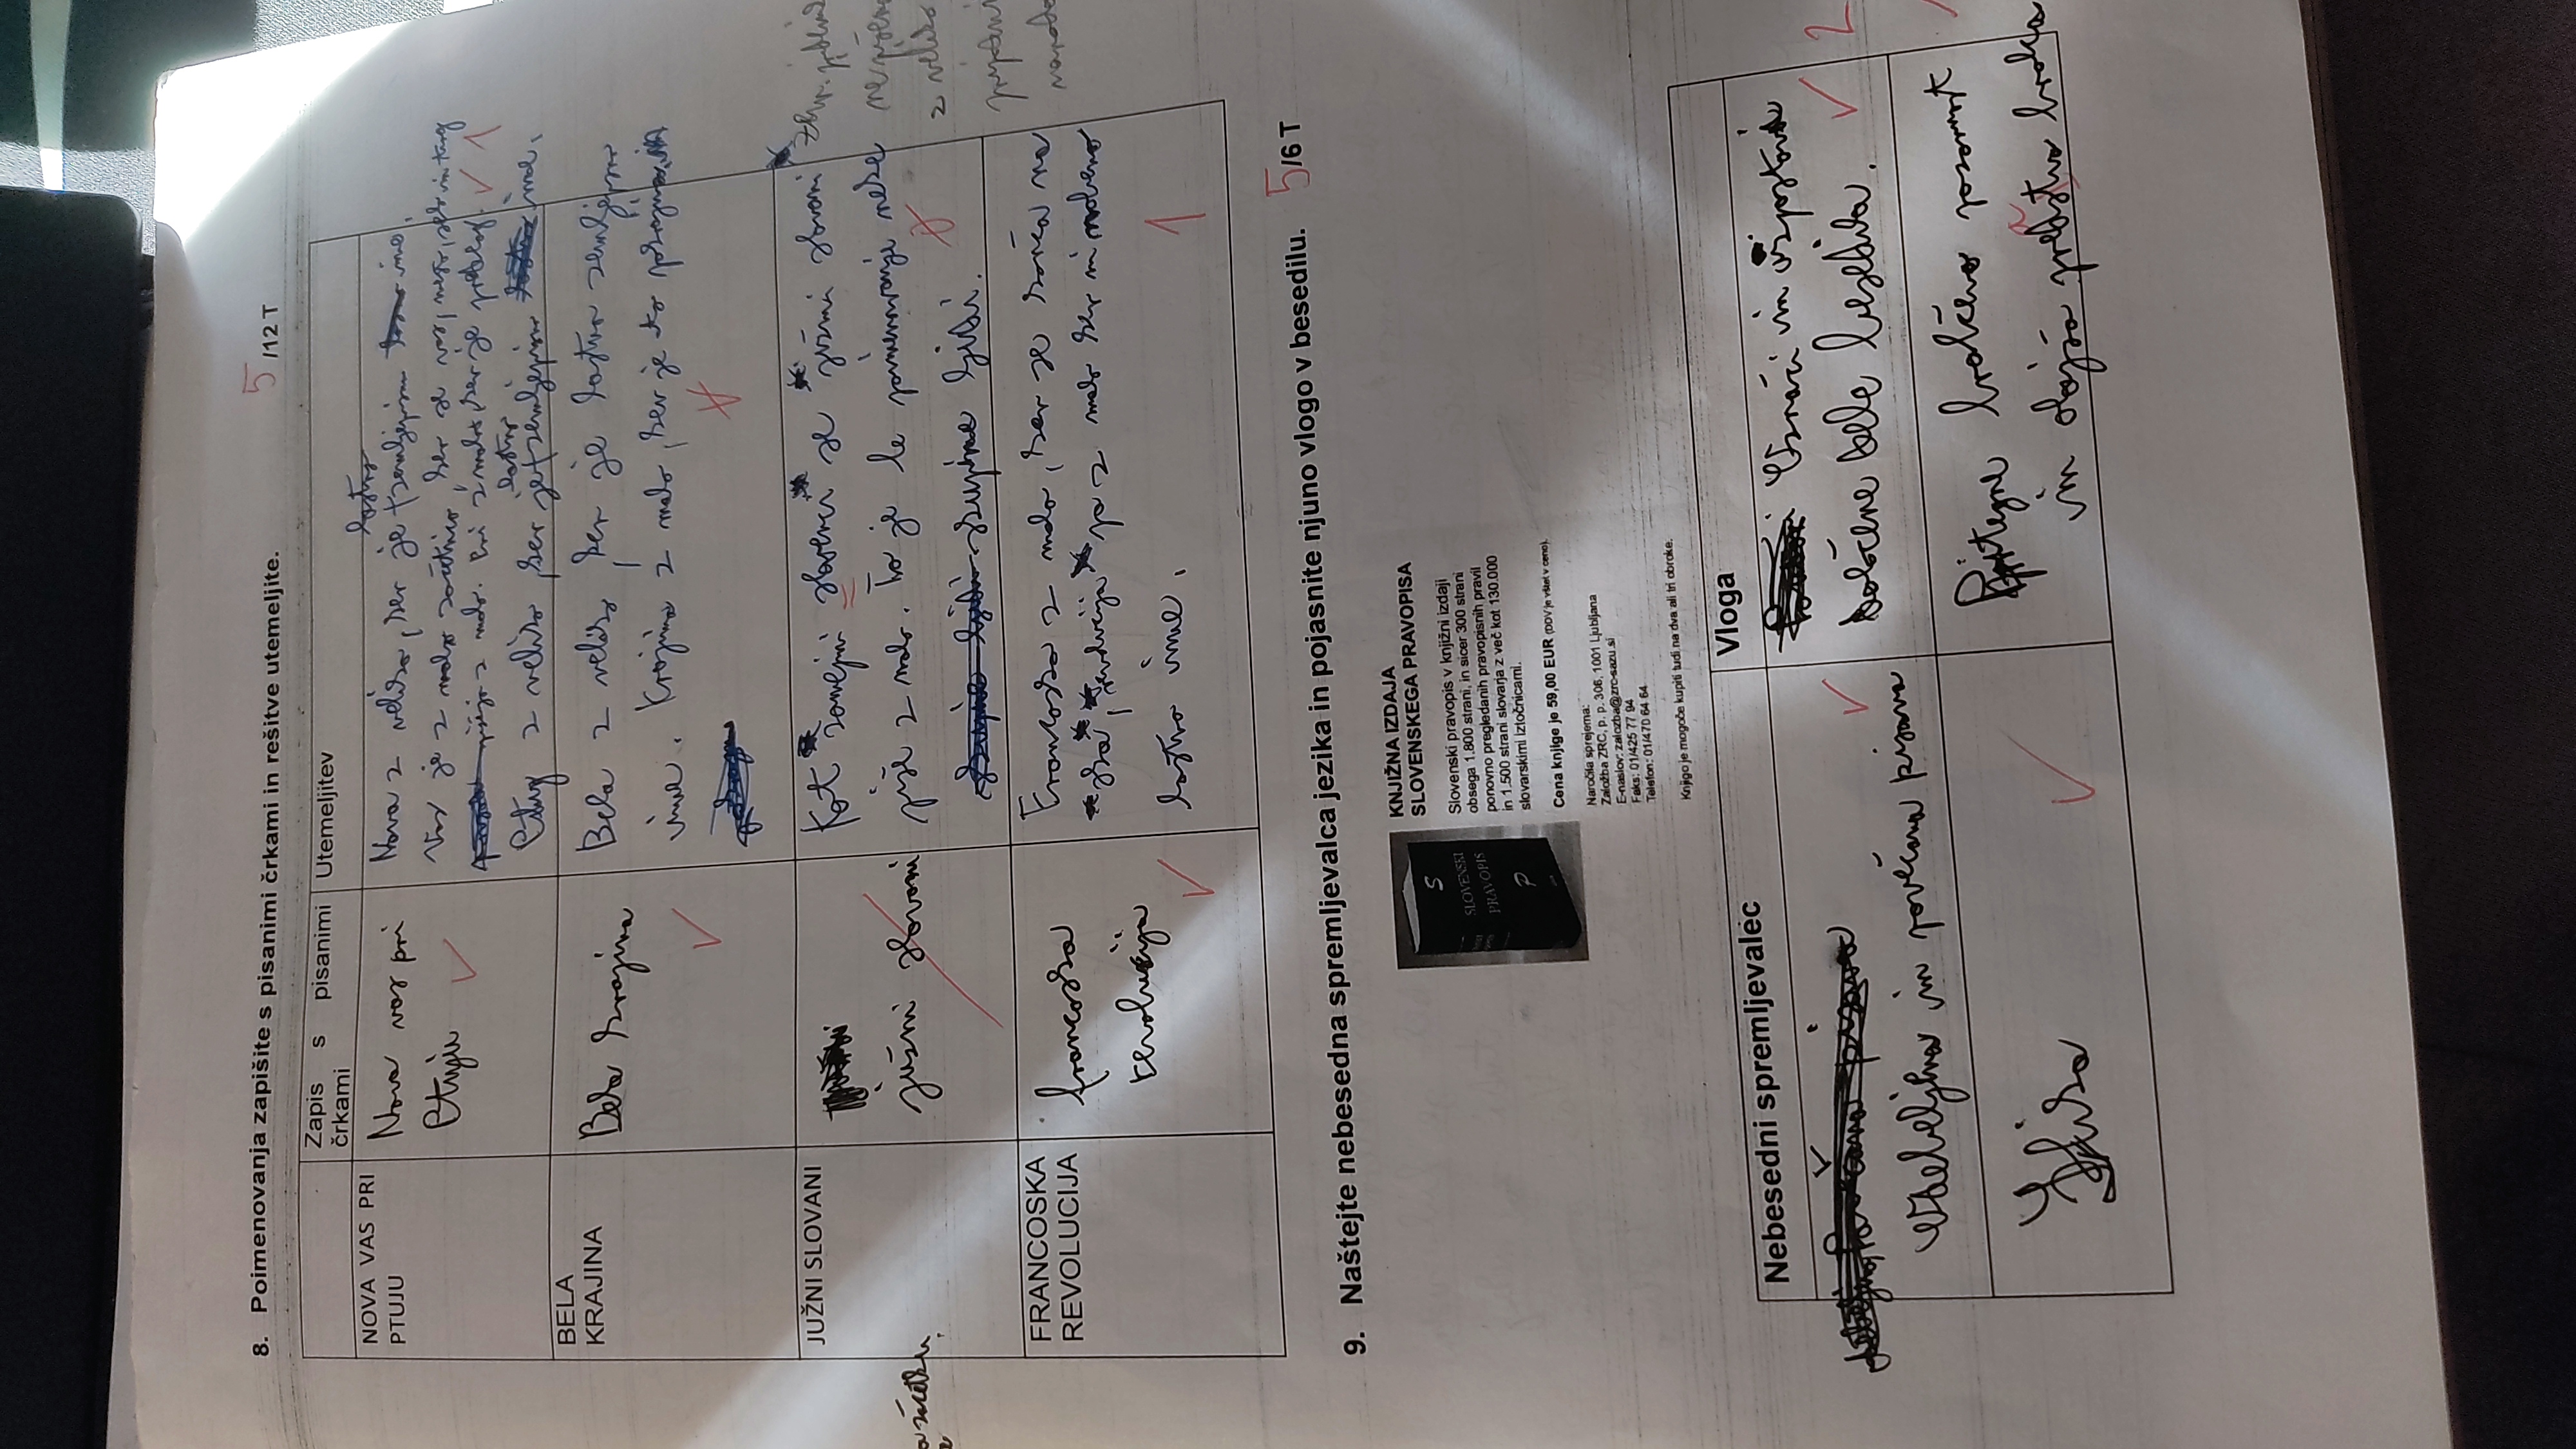 8. Poimenovanja zapišite s pisanimi črkami in rešitve utemeljite.
5 /12 T
Zapis s pisanimi črkami
Utemeljitev
NOVA VAS PRI
PTUJU
Nova vas pri
Ptuju
lastno
Nova z veliko, ker je zemljepisno ime.
Vas je z malo začetnico, ker se vas, mesto, selo in trg
pišejo z malo. Pri z malo, ker je predlog. 1
lastno
Ptuj z veliko, ker je zemljepisno ime.
BELA
KRAJINA
Bela krajina
Bela z veliko, ker je lastno zemljepisno
ime. Krajina z malo, ker je to pokrajina
JUŽNI SLOVANI
južni slovani
Kot zamejni slovenci se južni slovani
piše z malo. To je le poimenovanje neke
skupine ljudi.
ne pišemo
z veliko
FRANCOSKA
REVOLUCIJA
francoska
revolucija
Francoska z malo, ker se konča na
ska, revolucija pa z malo ker ni nobeno
lastno ime.
1
9. Naštejte nebesedna spremljevalca jezika in pojasnite njuno vlogo v besedilu.
5/6 T
S
SLOVENSKI
PRAVOPIS
P
KNJIŽNA IZDAJA
SLOVENSKEGA PRAVOPISA
Slovenski pravopis v knjižni izdaji
obsega 1.800 strani, in sicer 300 strani
ponovno pregledanih pravopisnih pravil
in 1.500 strani slovarja z več kot 130.000
slovarskimi iztočnicami.
Cena knjige je 59,00 EUR (DDV je vštet v ceno).
Naročila sprejema:
Založba ZRC, p. p. 306, 1001 Ljubljana
E-naslov: zalozba@zrc-sazu.si
Faks: 01/425 77 94
Telefon: 01/470 64 64
Knjigo je mogoče kupiti tudi na dva ali tri obroke.
Nebesedni spremljevalec
Vloga
Odebeljena in povečana pisava
Označi in izpostavi
določene dele besedila.
2
Slika
Pritegne bralčevo pozornost
in olajša predstvo bralca